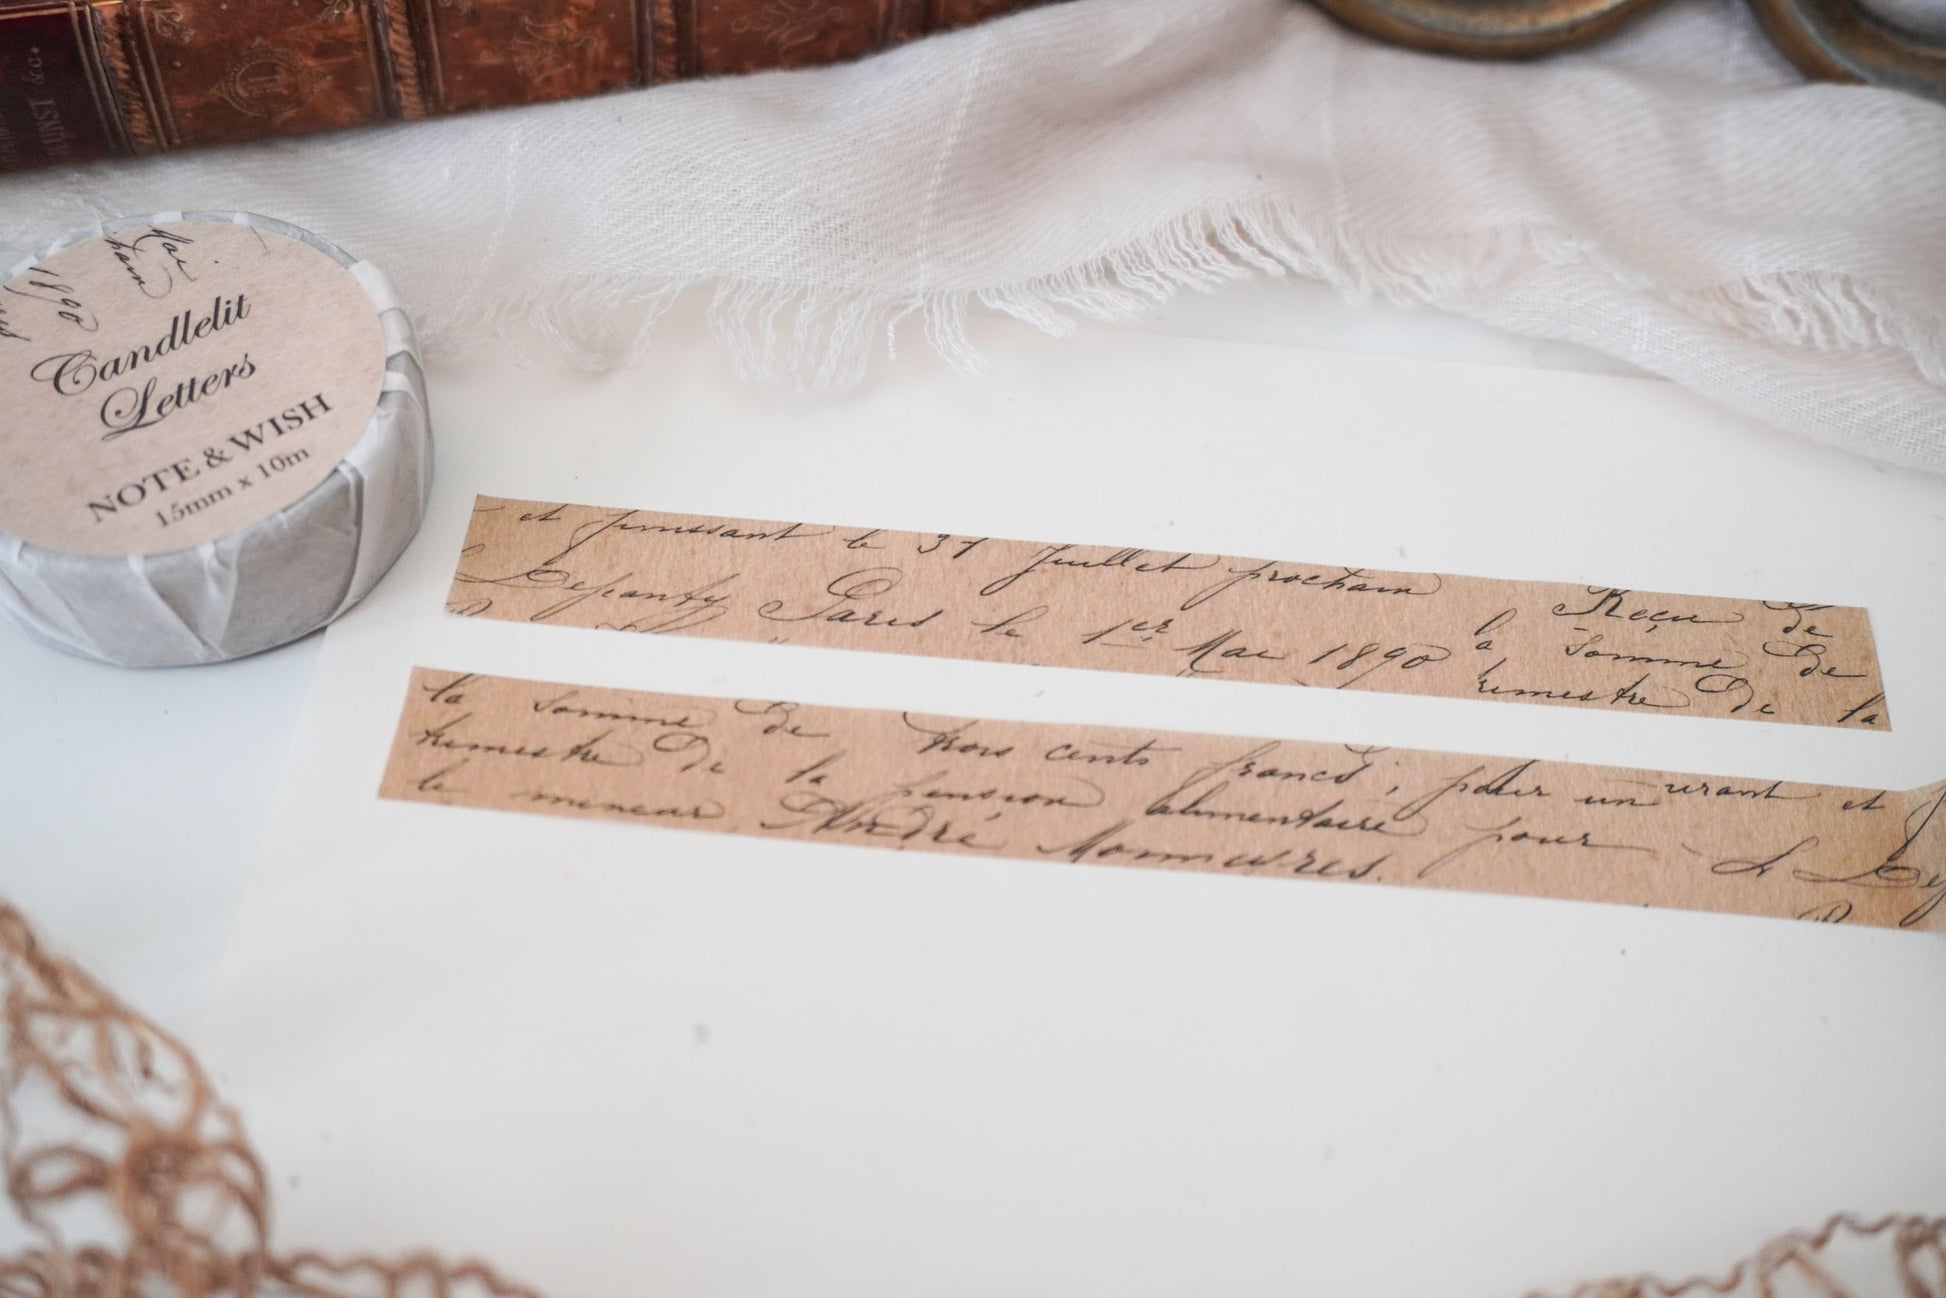 Mai
1890
Candlelit
Letters
NOTE & WISH
15mm x 10m
et finissant le 31 Juillet prochain Reçu de
Paris le 1er Mai 1890 la Somme de
trimestre de la
la Somme de trois cents francs; pour un urant et
trimestre de la pension alimentaire pour
le mineur André